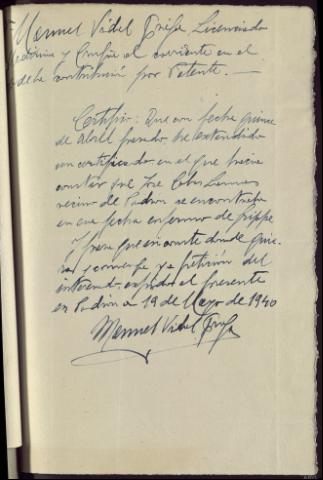 Manuel Vidal Trefa Licenciado
Medicina y Cirugía al corriente en el
de la contribución por Patente.
Certifico: Que con fecha quince
de Abril pasado he extendido
un certificado en el que hacia
constar que José Cobo
vecino de Padron se encontraba
en esa fecha enfermo de grippe
Y para que así conste donde
y convenga y a petición del
interesado expido el presente
en Padron a 19 de Mayo de 1940
Manuel Vidal Trefa